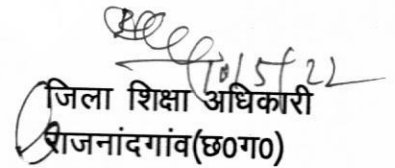 10/5/22
जिला शिक्षा अधिकारी
राजनांदगांव(छ0ग0)